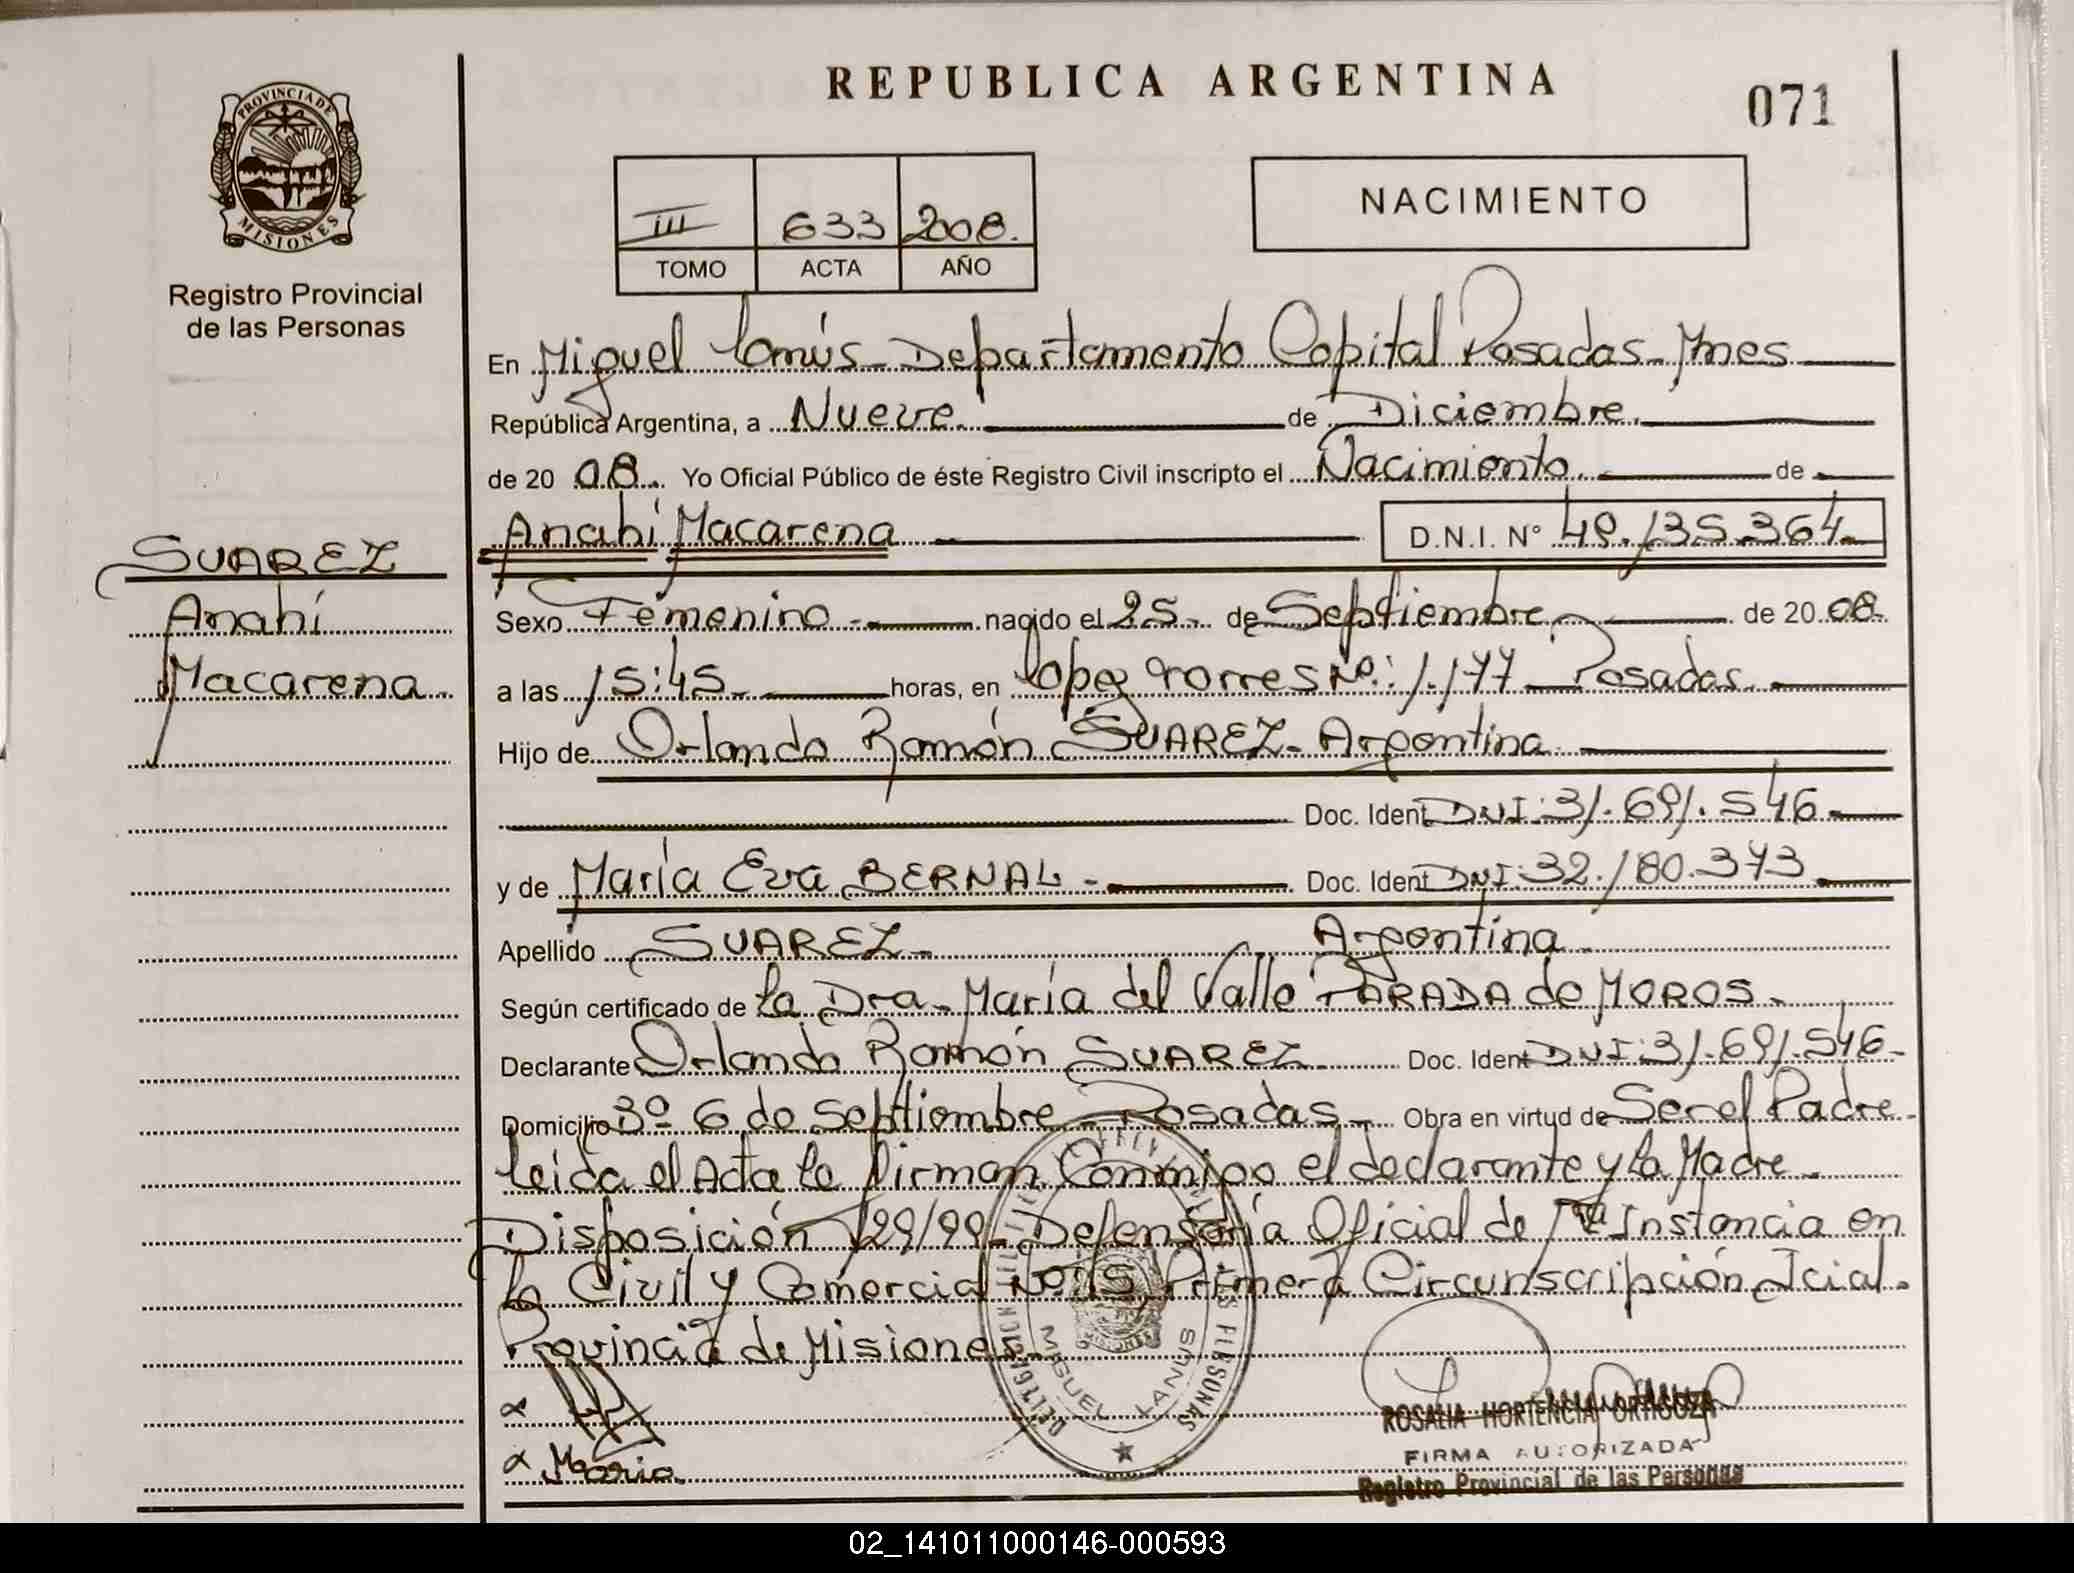 REPUBLICA ARGENTINA
071
PROVINCIA DE
MISIONES
Registro Provincial
de las Personas
III 633 2008.
TOMO ACTA AÑO
NACIMIENTO
En Miguel Lanús - Departamento Capital Posadas - Mnes
República Argentina, a Nueve. de Diciembre.
de 20 08. Yo Oficial Público de éste Registro Civil inscripto el Nacimiento. de
Anahí Macarena D.N.I. Nº 49.135.364.
SUAREZ
Anahí
Macarena
Sexo Femenino - nacido el 25 - de Septiembre de 20 08.
a las 15:45. horas, en Lopez Torres Nº: 1.177 - Posadas.
Hijo de Orlando Ramón SUAREZ - Argentina
Doc. Ident DNI: 31.691.546
y de María Eva BERNAL - Doc. Ident DNI: 32.180.373
Apellido SUAREZ - Argentina
Según certificado de La Dra. María del Valle PARADA de MOROS.
Declarante Orlando Ramón SUAREZ Doc. Ident DNI: 31.691.546
Domicilio 3º 6 de Septiembre - Posadas - Obra en virtud de Ser el Padre
Leida el Acta la firman Conmigo el declarante y la Madre
Disposición 129/99 - Defensoría Oficial de 1ra Instancia en
lo Civil y Comercial Nº: Primera Circunscripción Jcial.
Provincia de Misiones
MIGUEL LANUS
α
α María
ROSALIA HORTENCIA ORTIGOZA
FIRMA AUTORIZADA
Registro Provincial de las Personas
02_141011000146-000593